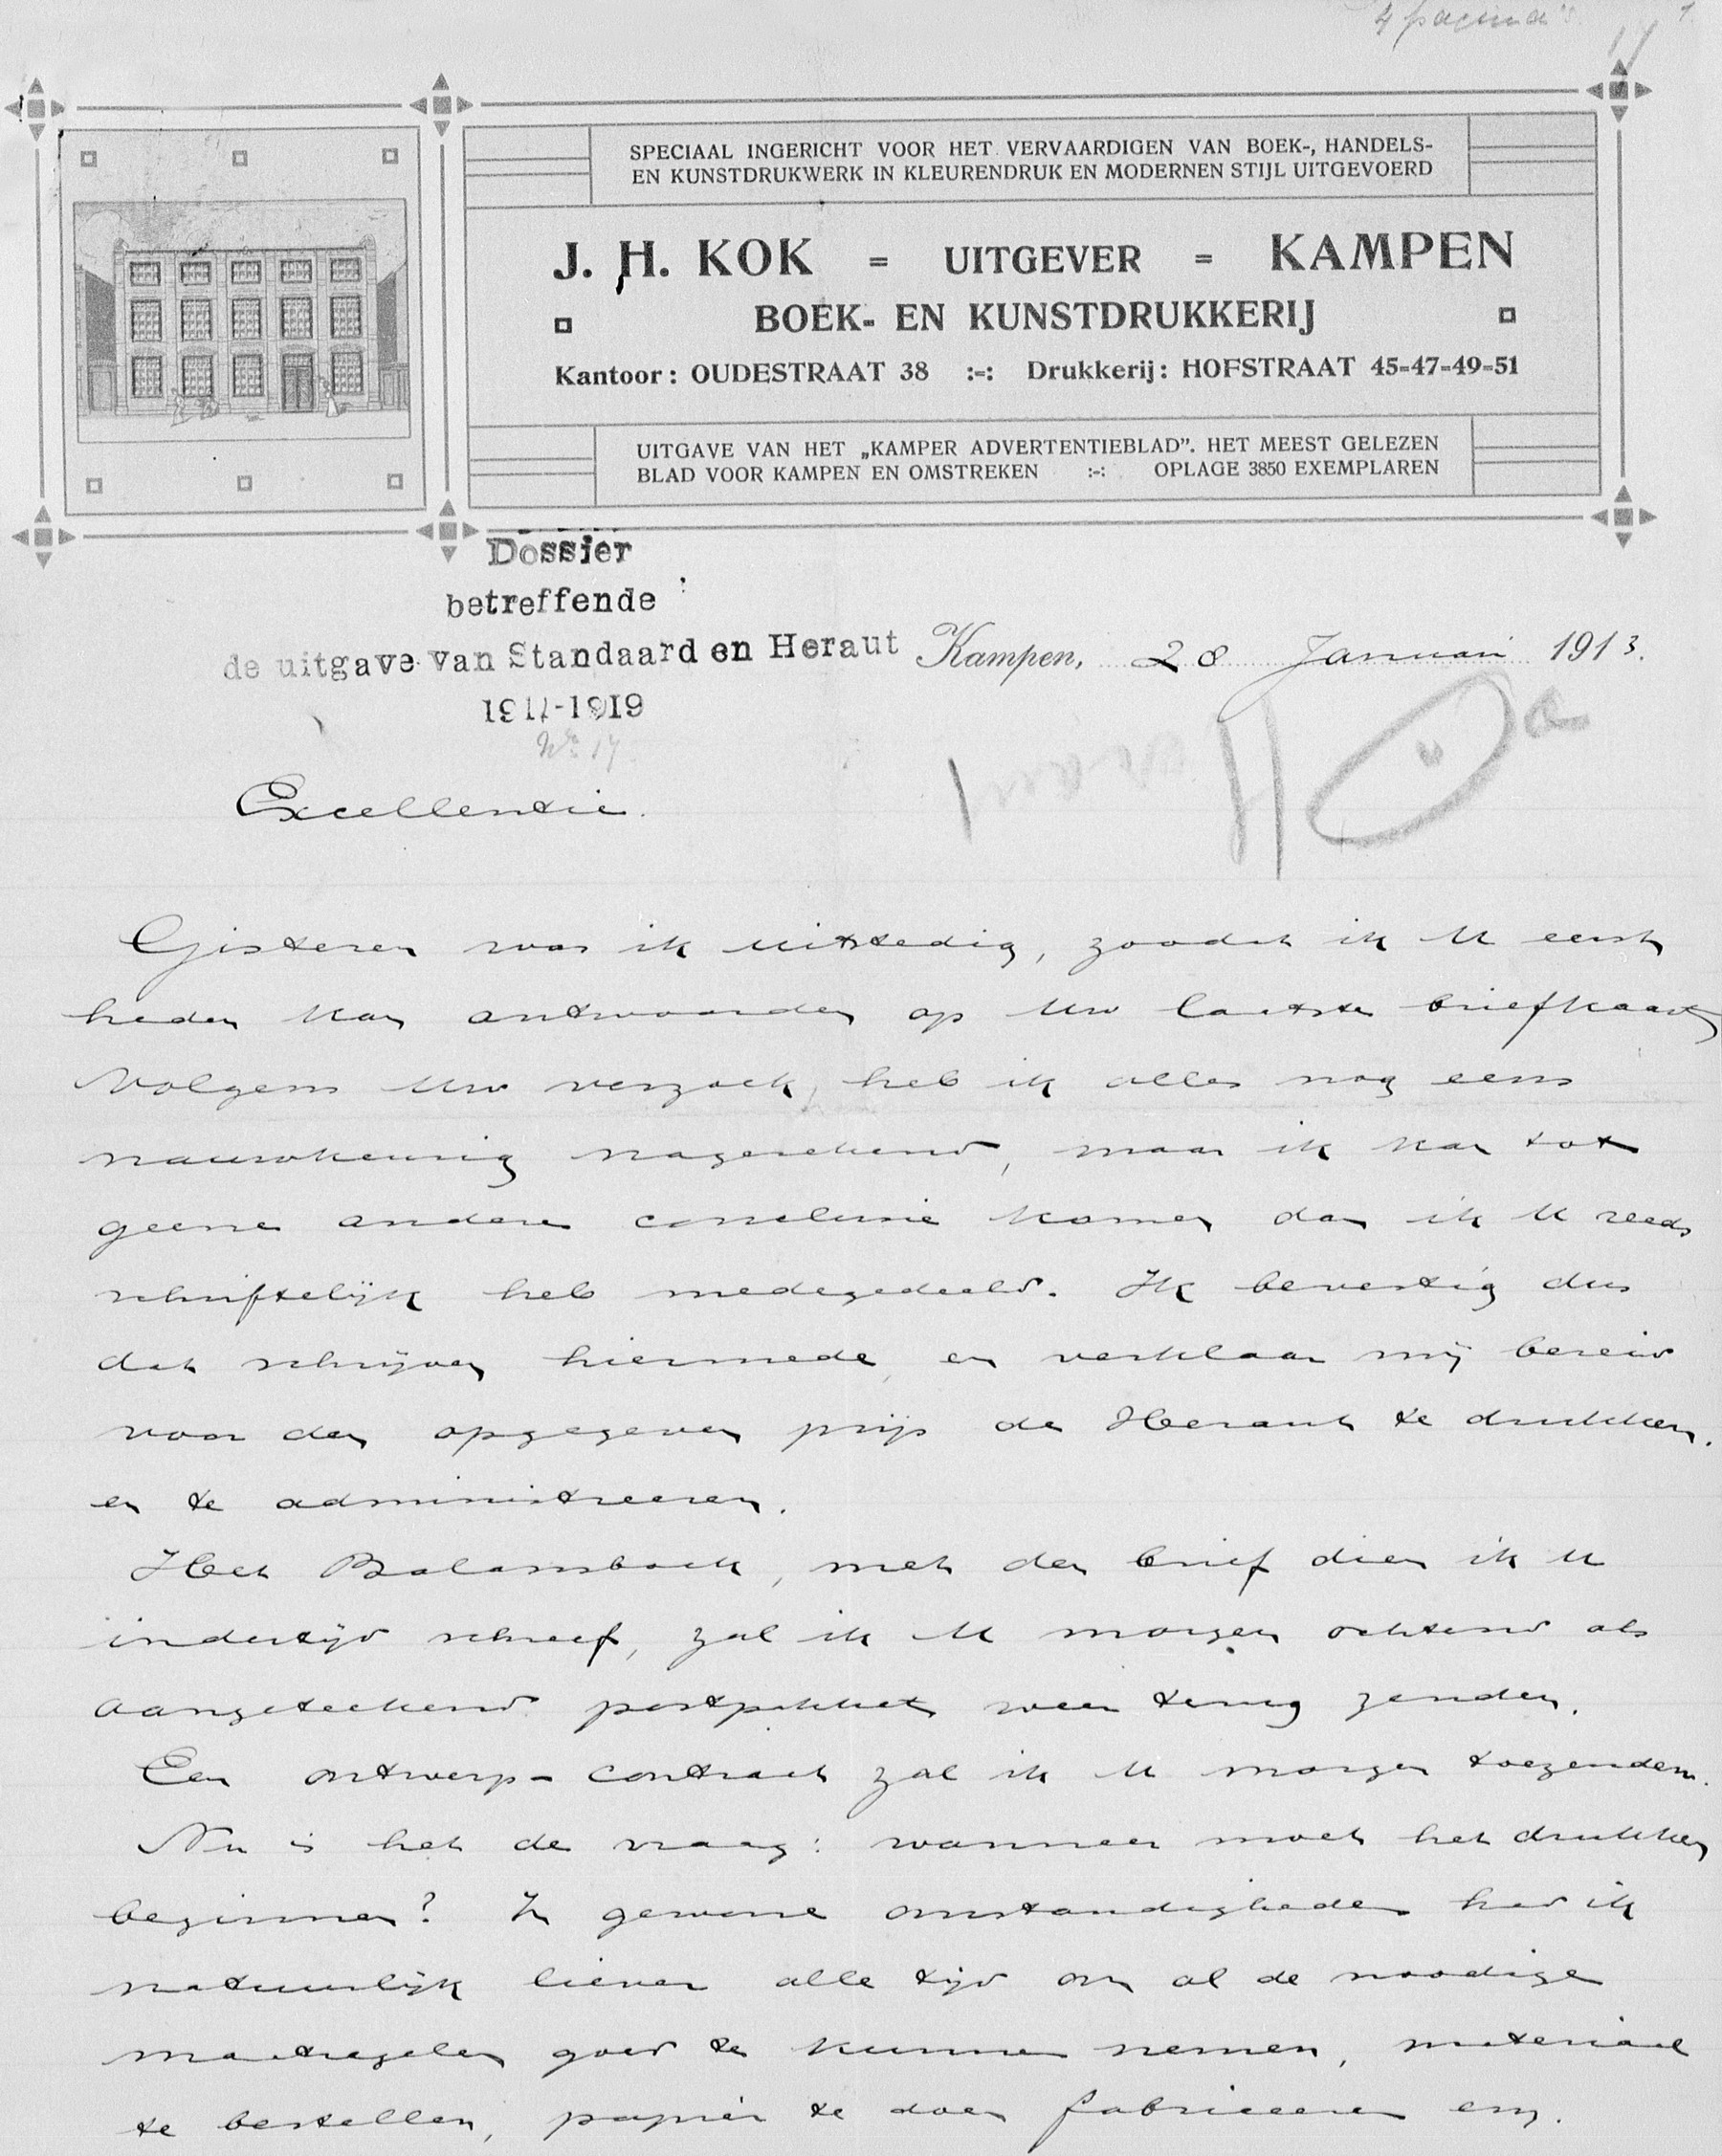 4 pagina's
SPECIAAL INGERICHT VOOR HET VERVAARDIGEN VAN BOEK-, HANDELS-
EN KUNSTDRUKWERK IN KLEURENDRUK EN MODERNEN STIJL UITGEVOERD
J. H. KOK = UITGEVER = KAMPEN
BOEK- EN KUNSTDRUKKERIJ
Kantoor: OUDESTRAAT 38 :-: Drukkerij: HOFSTRAAT 45-47-49-51
UITGAVE VAN HET „KAMPER ADVERTENTIEBLAD”. HET MEEST GELEZEN
BLAD VOOR KAMPEN EN OMSTREKEN :-: OPLAGE 3850 EXEMPLAREN
Dossier
betreffende
de uitgave van Standaard en Heraut
No 17
Kampen, 28 Januari 1913.
Excellentie.
Gisteren was ik uitstedig, zoodat ik U eerst
heden kan antwoorden op Uw laatste briefkaart
Volgens Uw verzoek, heb ik alles nog eens
nauwkeurig nagerekend, maar ik kan tot
geene andere conclusie komen dan ik U reeds
schriftelijk heb medegedeeld. Ik bevestig dus
dat schrijven hiermede, en verklaar mij bereid
voor den opgegeven prijs de Heraut te drukken.
en te administreeren.
Het Balansboek, met den brief dien ik U
indertijd schreef, zal ik U morgen ochtend als
aangeteekend postpakket weer terug zenden.
Een ontwerp-contract zal ik U morgen toezenden.
Nu is het de vraag: wanneer moet het drukken
beginnen? In gewone omstandigheden had ik
natuurlijk liever alle tijd om al de noodige
maatregelen goed te kunnen nemen, materiaal
te bestellen, papier te doen fabriceeren enz.